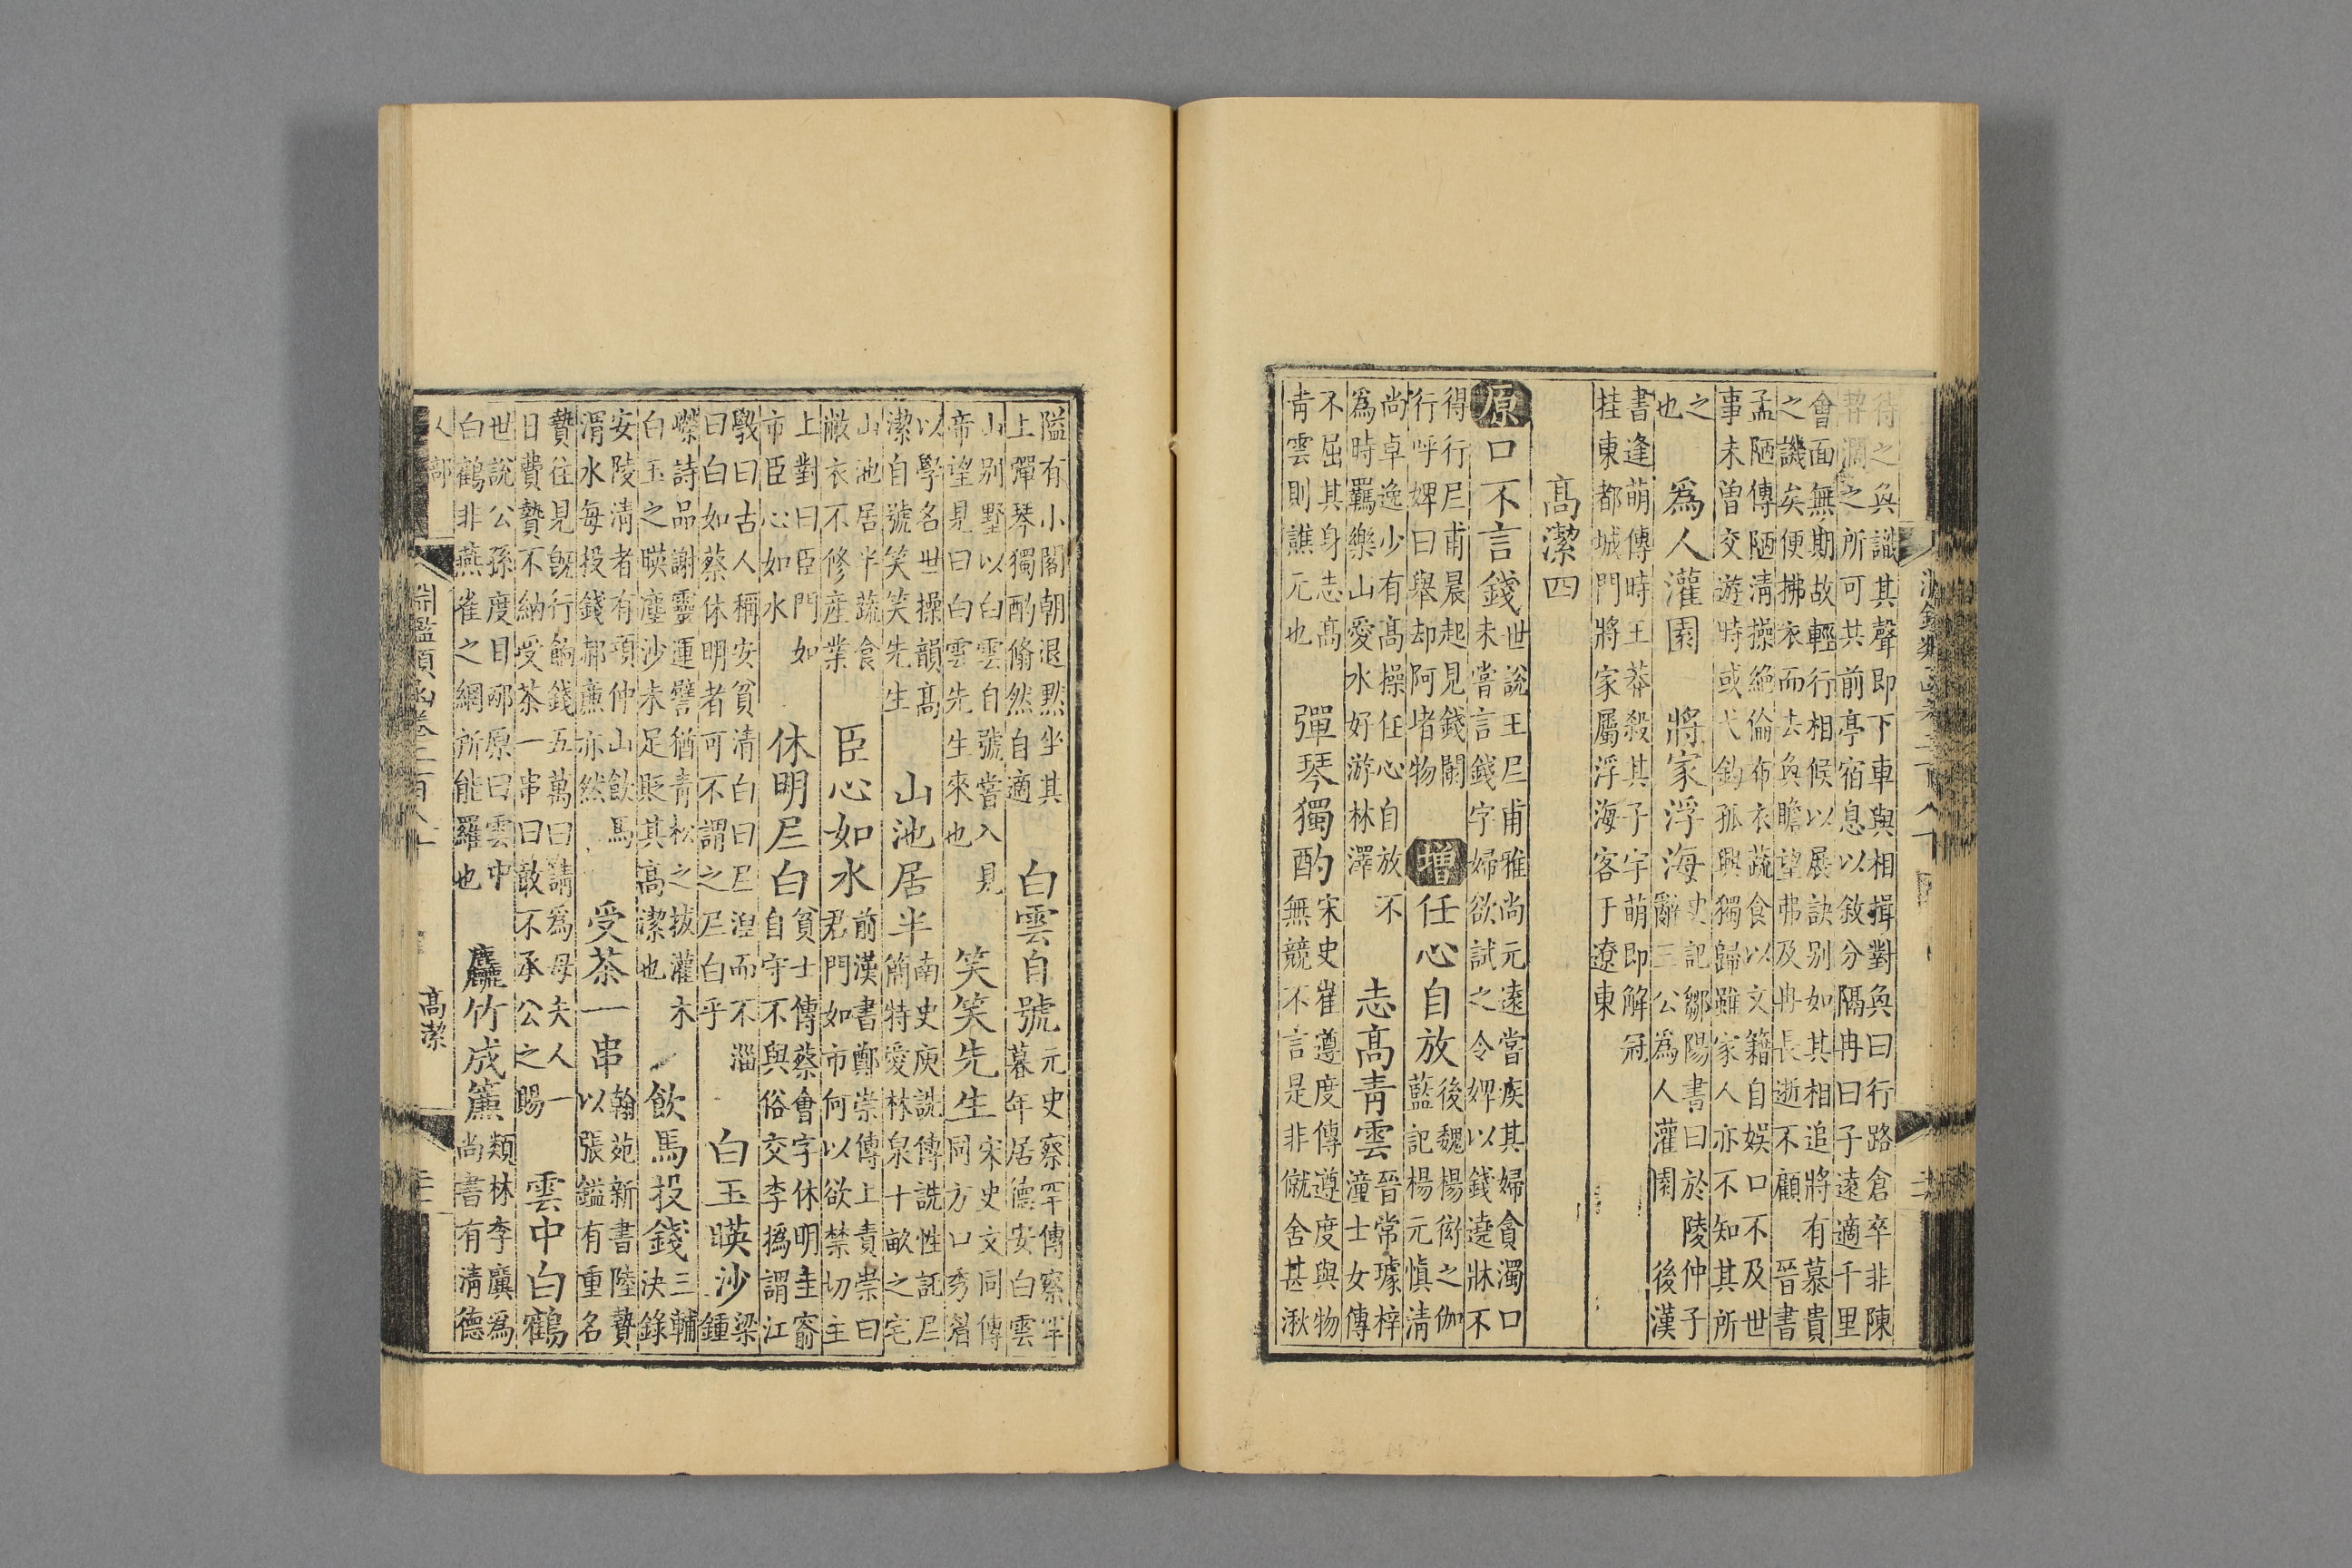 待之奐識其聲即下車與相揖對奐曰行路倉卒非陳
契濶之所可共前亭宿息以敘分隔冉曰子遠適千里
會面無期故輕行相候以展訣别如其相追將有慕貴
之譏矣便拂衣而去奐瞻望弗及冉長逝不顧 晉書
孟陋傳陋淸操絶倫布衣蔬食以文籍自娯口不及世
事未曽交遊時或弋釣孤興獨歸雖家人亦不知其所
之
也
爲人灌園 將家浮海
史記鄒陽書曰於陵仲子
辭三公爲人灌園 後漢
書逢萌傳時王莽殺其子宇萌即解冠
挂東都城門將家屬浮海客于遼東
高潔四
原 口不言錢
世説王尼甫雅尚元遠當疾其婦貪濁口
未嘗言錢字婦欲試之令婢以錢遶牀不
得行尼甫晨起見錢閡
行呼婢曰舉却阿堵物
增 任心自放
後魏楊衒之伽
藍記楊元愼淸
尚卓逸少有高操任心自放不
爲時羈樂山愛水好游林澤
志高青雲
晉常璩梓
潼士女傳
不屈其身志高
青雲則譙元也
彈琴獨酌
宋史崔遵度傳遵度與物
無競不言是非僦舍甚湫
隘有小閣朝退黙坐其
上彈琴獨酌翛然自適
白雲自號
元史察罕傳察罕
暮年居德安白雲
山别墅以白雲自號嘗入見
帝望見曰白雲先生來也
笑笑先生
宋史文同傳
同方口秀眉
以學名世操韻高
潔自號笑笑先生
山池居半
南史庾詵傳詵性託尼
簡特愛林泉十畝之宅
山池居半蔬食
敝衣不修産業
臣心如水
前漢書鄭崇傳上責崇曰
君門如市何以欲禁切主
上對曰臣門如
市臣心如水
休明尼白
貧士傳蔡會字休明圭窬
自守不與俗交李撝謂江
斆曰古人稱安貧淸白曰尼湼而不淄
曰白如蔡休明者可不謂之尼白乎
白玉暎沙
梁
鍾
嶸詩品謝靈運譬猶青松之拔灌木
白玉之暎塵沙未足貶其高潔也
飲馬投錢
三輔
決錄
安陵淸者有項仲山飲馬
渭水每投錢郝廉亦然
受茶一串
翰苑新書陸贄
以張鎰有重名
贄往見旣行餉錢五萬曰請爲母夫人一
日費贄不納受茶一串曰敢不承公之賜
雲中白鶴
世説公孫度目邴原曰雲中
白鶴非燕雀之網所能羅也
麤竹成簾
類林李廣爲
尚書有淸德
人部
淵鑑類函卷二百八十
高潔